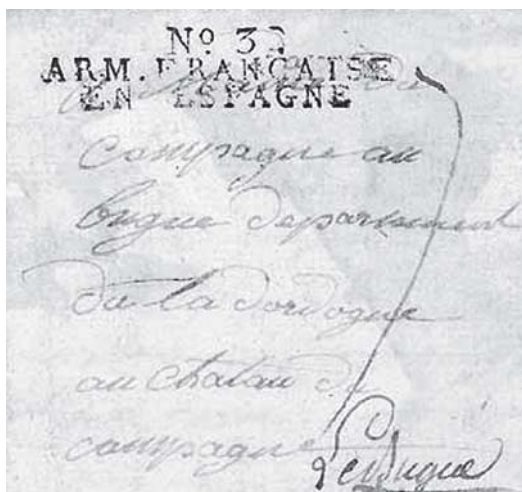 No 32
ARM. FRANÇAISE
EN ESPAGNE
de
campagne au
bugue departement
de la dordogne
au chatau de
campagne
Lebugue